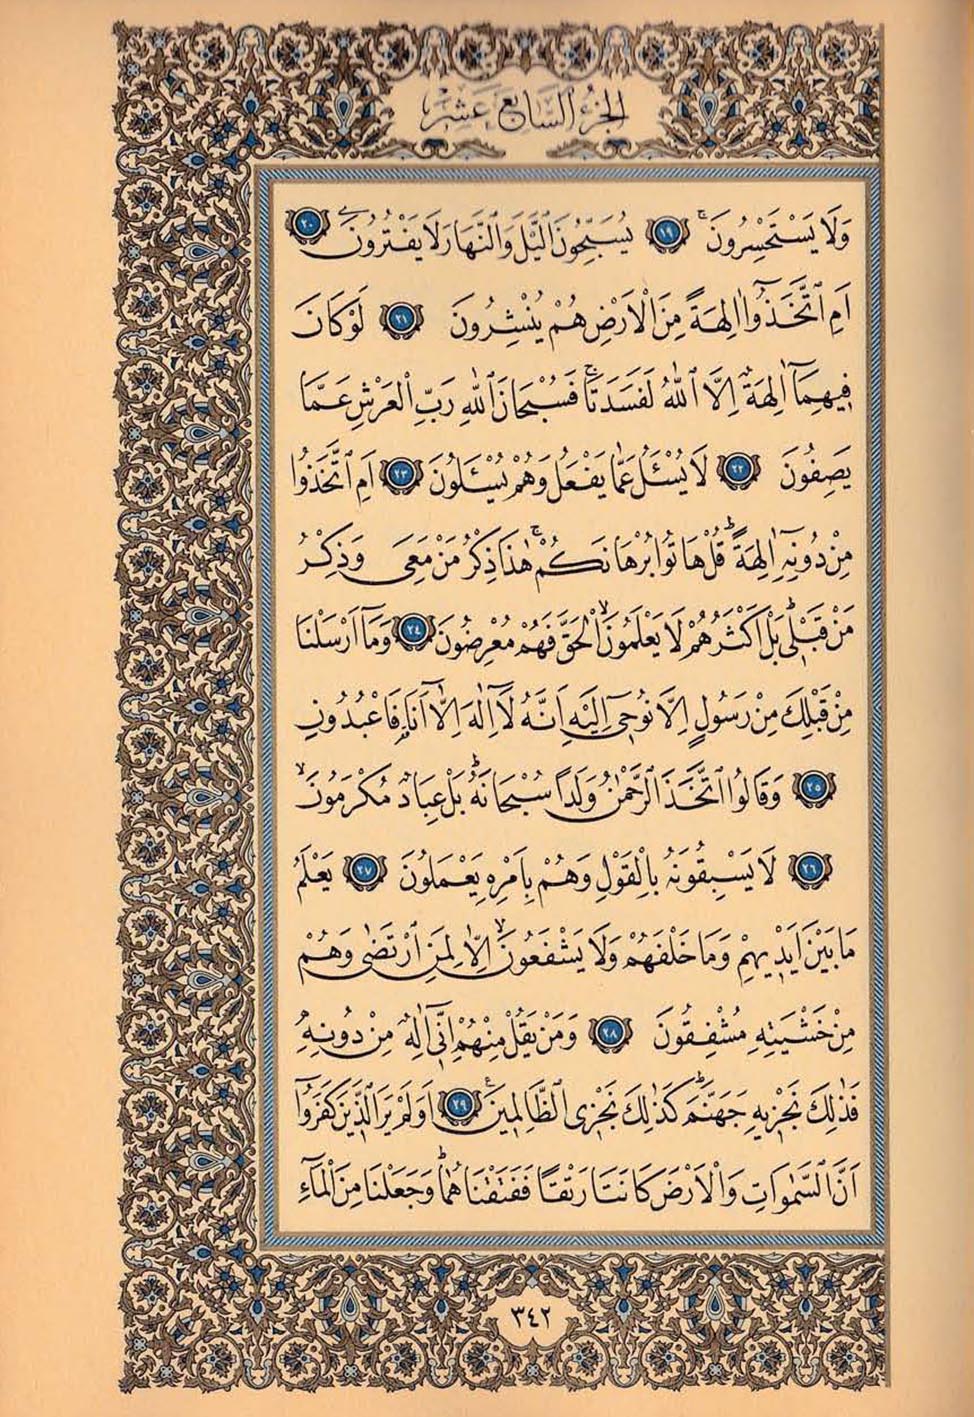 الجزء السابع عشر
وَلَا يَسْتَحْسِرُونَۚ ﴿١٩﴾ يُسَبِّحُونَ الَّيْلَ وَالنَّهَارَ لَا يَفْتُرُونَ ﴿٢٠﴾
اَمِ اتَّخَذُٓوا اٰلِهَةً مِنَ الْاَرْضِ هُمْ يُنْشِرُونَ ﴿٢١﴾ لَوْ كَانَ
فِيهِمَٓا اٰلِهَةٌ اِلَّا اللّٰهُ لَفَسَدَتَاۚ فَسُبْحَانَ اللّٰهِ رَبِّ الْعَرْشِ عَمَّا
يَصِفُونَ ﴿٢٢﴾ لَا يُسْـَٔلُ عَمَّا يَفْعَلُ وَهُمْ يُسْـَٔلُونَ ﴿٢٣﴾ اَمِ اتَّخَذُوا
مِنْ دُونِهِٓ اٰلِهَةًۜ قُلْ هَاتُوا بُرْهَانَكُمْۚ هٰذَا ذِكْرُ مَنْ مَعِيَ وَذِكْرُ
مَنْ قَبْلِيۜ بَلْ اَكْثَرُهُمْ لَا يَعْلَمُونَۙ الْحَقَّ فَهُمْ مُعْرِضُونَ ﴿٢٤﴾ وَمَٓا اَرْسَلْنَا
مِنْ قَبْلِكَ مِنْ رَسُولٍ اِلَّا نُوحِٓي اِلَيْهِ اَنَّهُ لَٓا اِلٰهَ اِلَّٓا اَنَا۬ فَاعْبُدُونِ
﴿٢٥﴾ وَقَالُوا اتَّخَذَ الرَّحْمٰنُ وَلَدًا سُبْحَانَهُۜ بَلْ عِبَادٌ مُكْرَمُونَۙ
﴿٢٦﴾ لَا يَسْبِقُونَهُ بِالْقَوْلِ وَهُمْ بِاَمْرِهِ يَعْمَلُونَ ﴿٢٧﴾ يَعْلَمُ
مَا بَيْنَ اَيْدِيهِمْ وَمَا خَلْفَهُمْ وَلَا يَشْفَعُونَۙ اِلَّا لِمَنِ ارْتَضٰى وَهُمْ
مِنْ خَشْيَتِهِ مُشْفِقُونَ ﴿٢٨﴾ وَمَنْ يَقُلْ مِنْهُمْ اِنِّٓي اِلٰهٌ مِنْ دُونِهِ
فَذٰلِكَ نَجْزِيهِ جَهَنَّمَۜ كَذٰلِكَ نَجْزِي الظَّالِمِينَ۟ ﴿٢٩﴾ اَوَلَمْ يَرَ الَّذِينَ كَفَرُٓوا
اَنَّ السَّمٰوَاتِ وَالْاَرْضَ كَانَتَا رَتْقًا فَفَتَقْنَاهُمَاۜ وَجَعَلْنَا مِنَ الْمَٓاءِ
٣٤٢